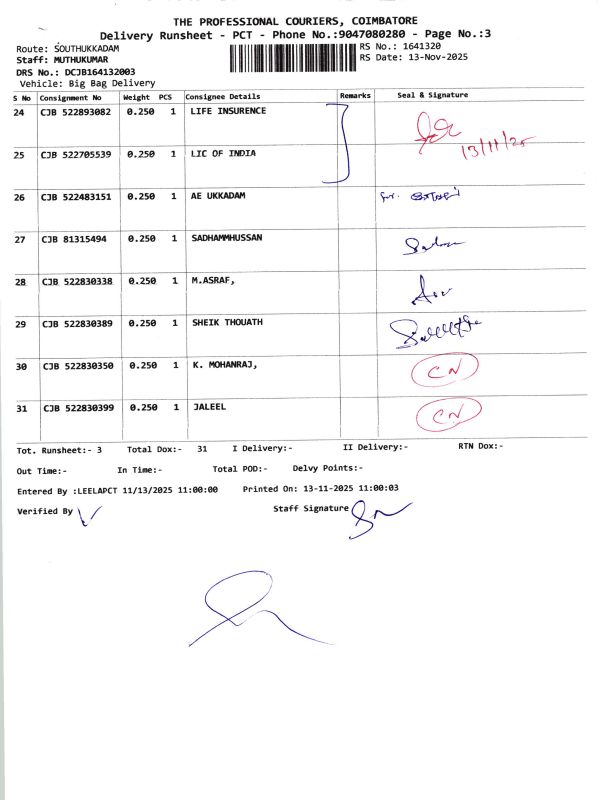 THE PROFESSIONAL COURIERS, COIMBATORE
Delivery Runsheet - PCT - Phone No.:9047080280 - Page No.:3
Route: SOUTHUKKADAM RS No.: 1641320
Staff: MUTHUKUMAR RS Date: 13-Nov-2025
DRS No.: DCJB164132003
Vehicle: Big Bag Delivery
S No Consignment No Weight PCS Consignee Details Remarks Seal & Signature
24 CJB 522893082 0.250 1 LIFE INSURENCE
13/11/25
25 CJB 522705539 0.250 1 LIC OF INDIA
26 CJB 522483151 0.250 1 AE UKKADAM
27 CJB 81315494 0.250 1 SADHAMMHUSSAN
28 CJB 522830338 0.250 1 M.ASRAF,
29 CJB 522830389 0.250 1 SHEIK THOUATH
30 CJB 522830350 0.250 1 K. MOHANRAJ, CN
31 CJB 522830399 0.250 1 JALEEL CN
Tot. Runsheet:- 3 Total Dox:- 31 I Delivery:- II Delivery:- RTN Dox:-
Out Time:- In Time:- Total POD:- Delvy Points:-
Entered By :LEELAPCT 11/13/2025 11:00:00 Printed On: 13-11-2025 11:00:03
Verified By Staff Signature